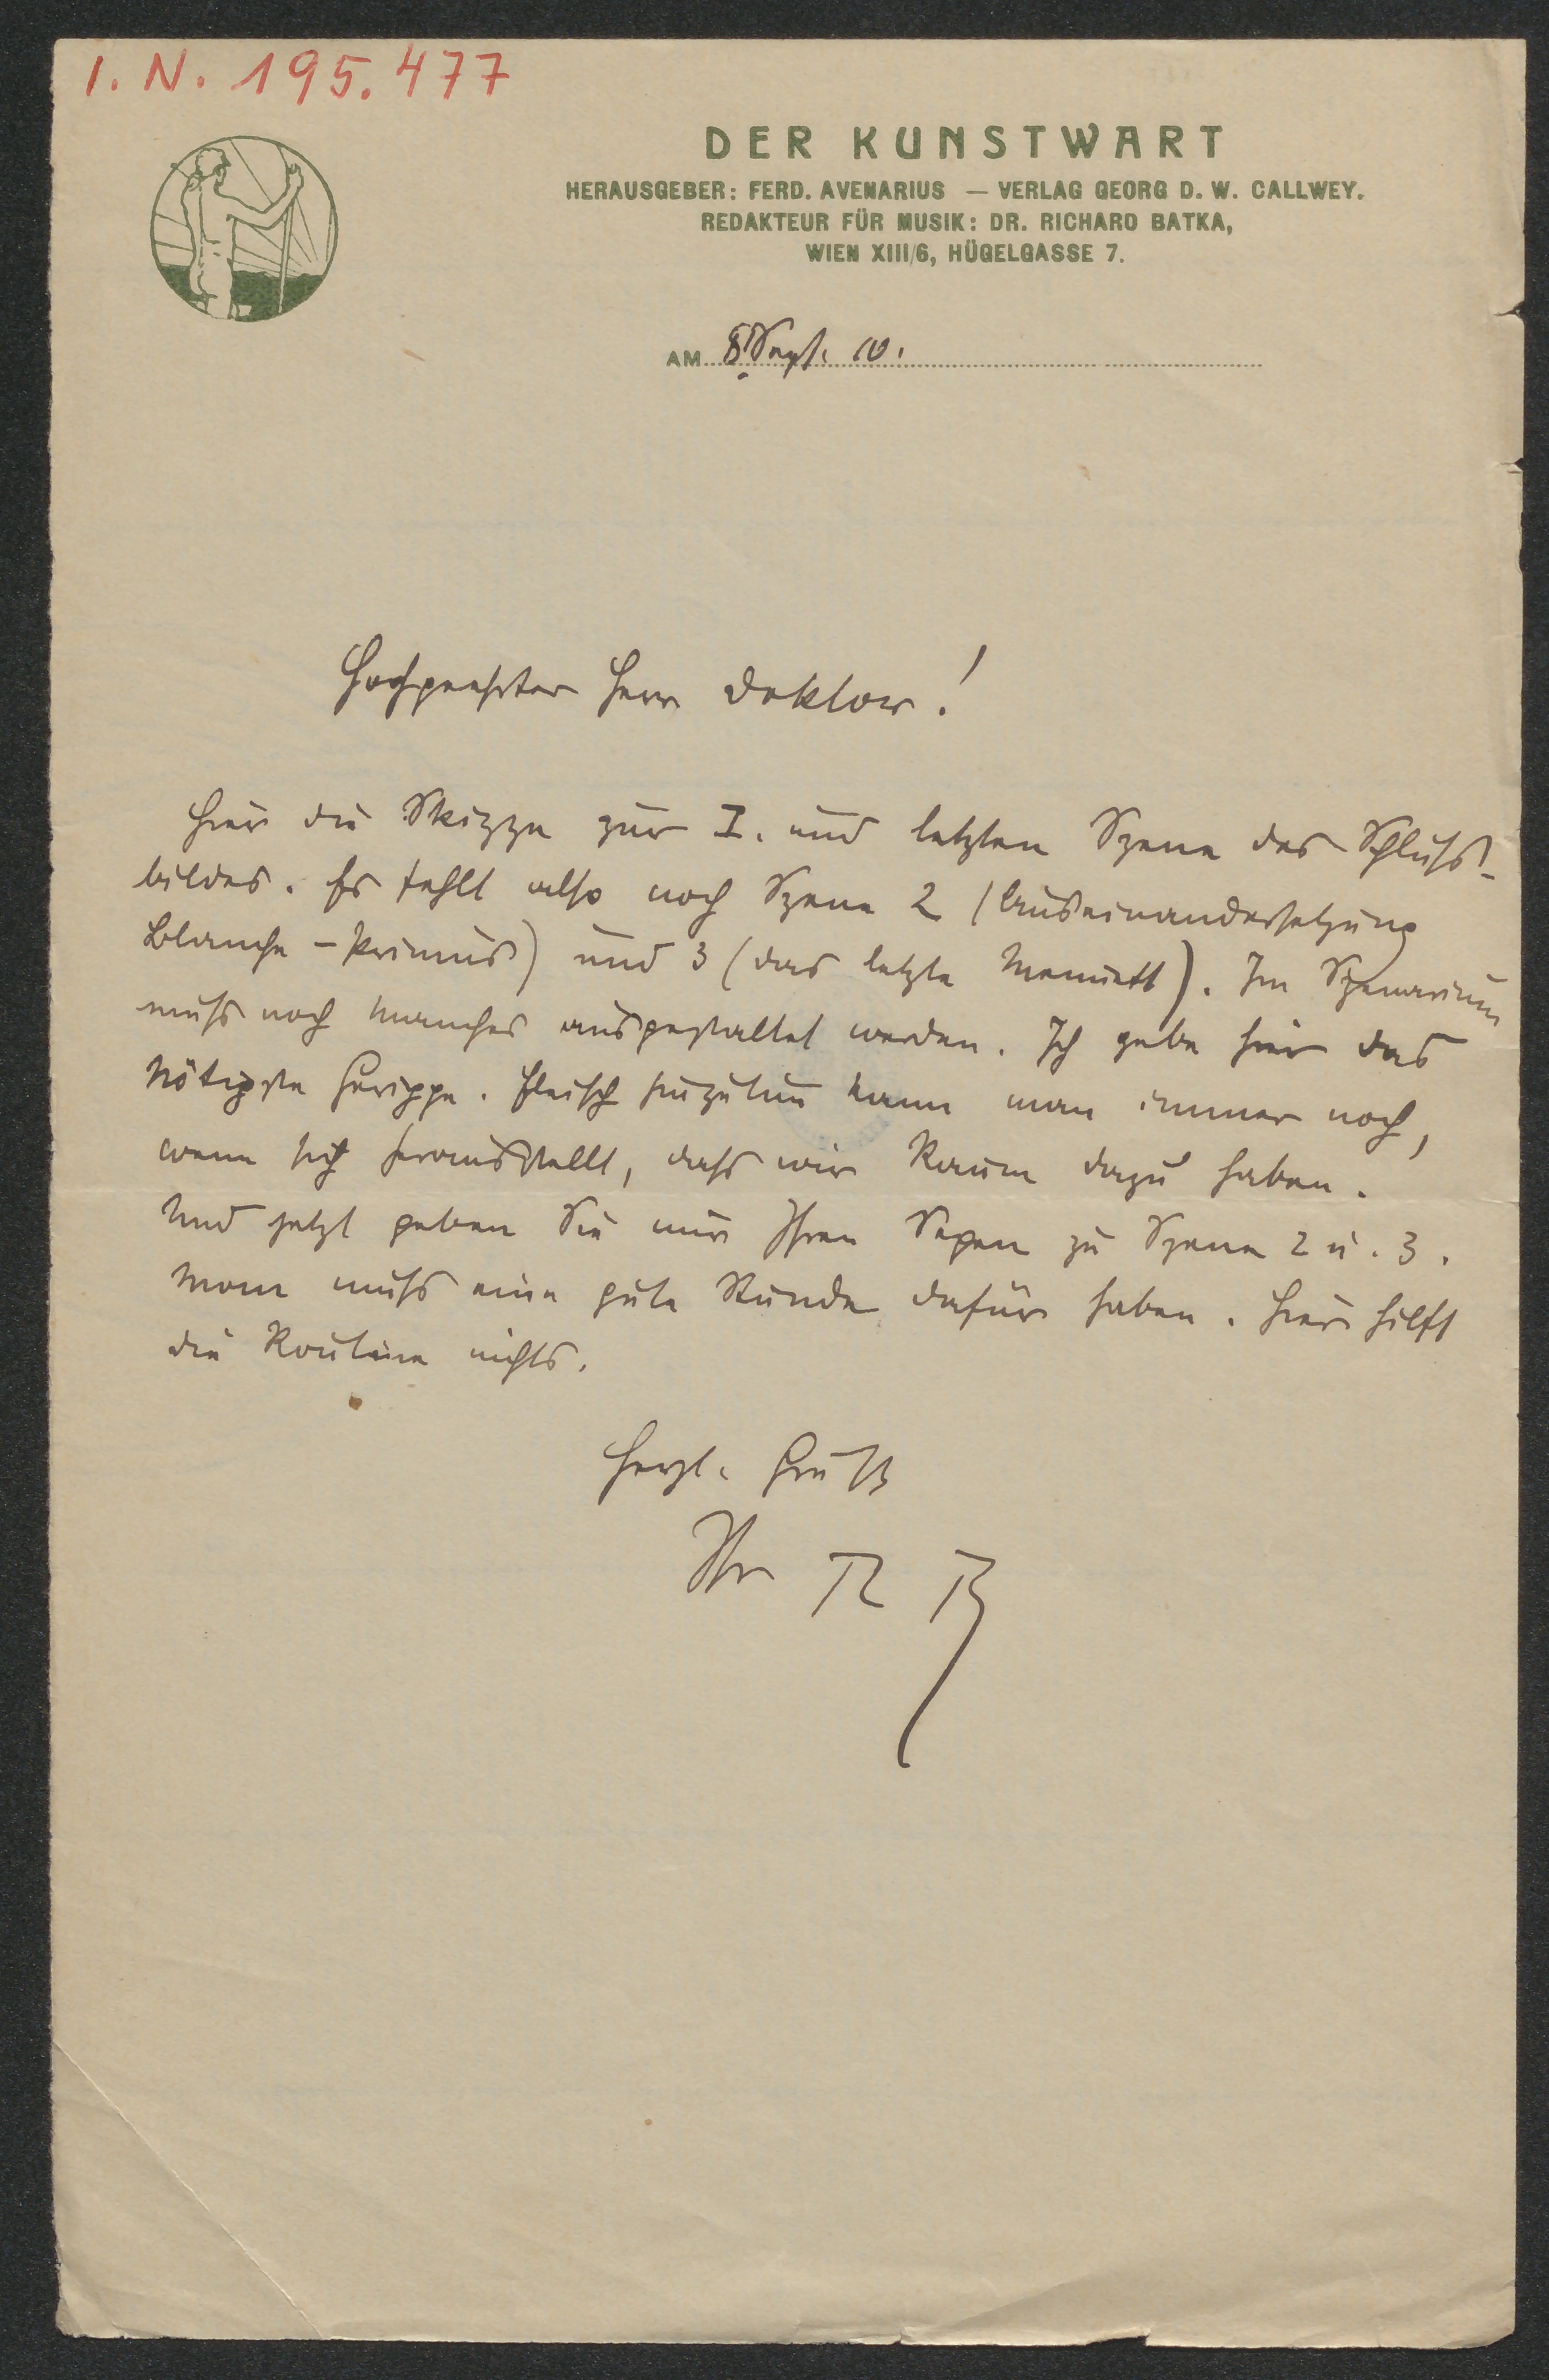 I. N. 195.477
DER KUNSTWART
HERAUSGEBER: FERD. AVENARIUS — VERLAG GEORG D. W. CALLWEY.
REDAKTEUR FÜR MUSIK: DR. RICHARD BATKA,
WIEN XIII/6, HÜGELGASSE 7.
AM 8. Sept. 10.
Hochgeehrter Herr Doktor!
Hier die Skizze zur I. und letzten Szene des Schluss-
bildes. Es fehlt also noch Szene 2 (Auseinandersetzung
Blanche - Primus) und 3 (das letzte Menuett). Im Szenarium
muss noch manches ausgestaltet werden. Ich gebe hier das
nötigste Gerippe. Fleisch hinzutun kann man immer noch,
wenn sich herausstellt, dass wir Raum dazu haben.
Und jetzt geben Sie mir Ihren Segen zu Szene 2 u. 3.
Man muss eine gute Stunde dafür haben. Hier hilft
die Routine nichts.
Herzl. Gruß
Ihr R B